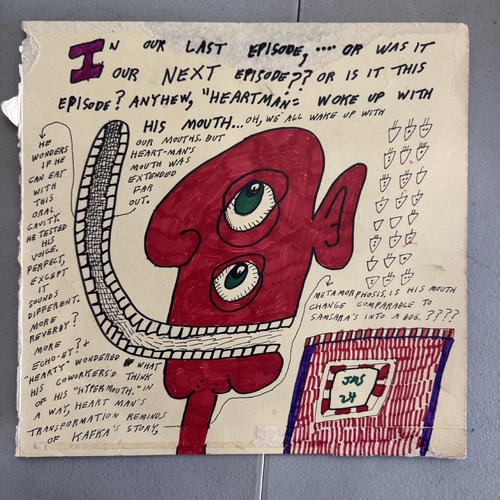 IN OUR LAST EPISODE, .... OR WAS IT
OUR NEXT EPISODE?? OR IS IT THIS
EPISODE? ANYHEW, "HEARTMAN= WOKE UP WITH
HIS MOUTH... OH, WE'ALL WAKE UP WITH
OUR MOUTHS. BUT
HEART-MAN'S
MOUTH WAS
EXTENDED
FAR
OUT.
HE
WONDERS
IF HE
CAN EAT
WITH
THIS
ORAL
CAVITY.
HE TESTED
HIS
VOICE.
PERFECT,
EXCEPT
IT
SOUNDS
DIFFERENT.
MORE
REVERBY?
MORE
ECHO-EY?
"HEARTY" WONDERED WHAT
HIS COWORKERS'D THINK
OF HIS "HYPERMOUTH." IN
A WAY, HEART MAN'S
TRANSFORMATION REMINDS
OF KAFKA'S STORY,
METAMORPHOSIS, IS HIS MOUTH
CHANGE COMPARABLE TO
SAMSARA'S INTO A BUG.????
JMS
24